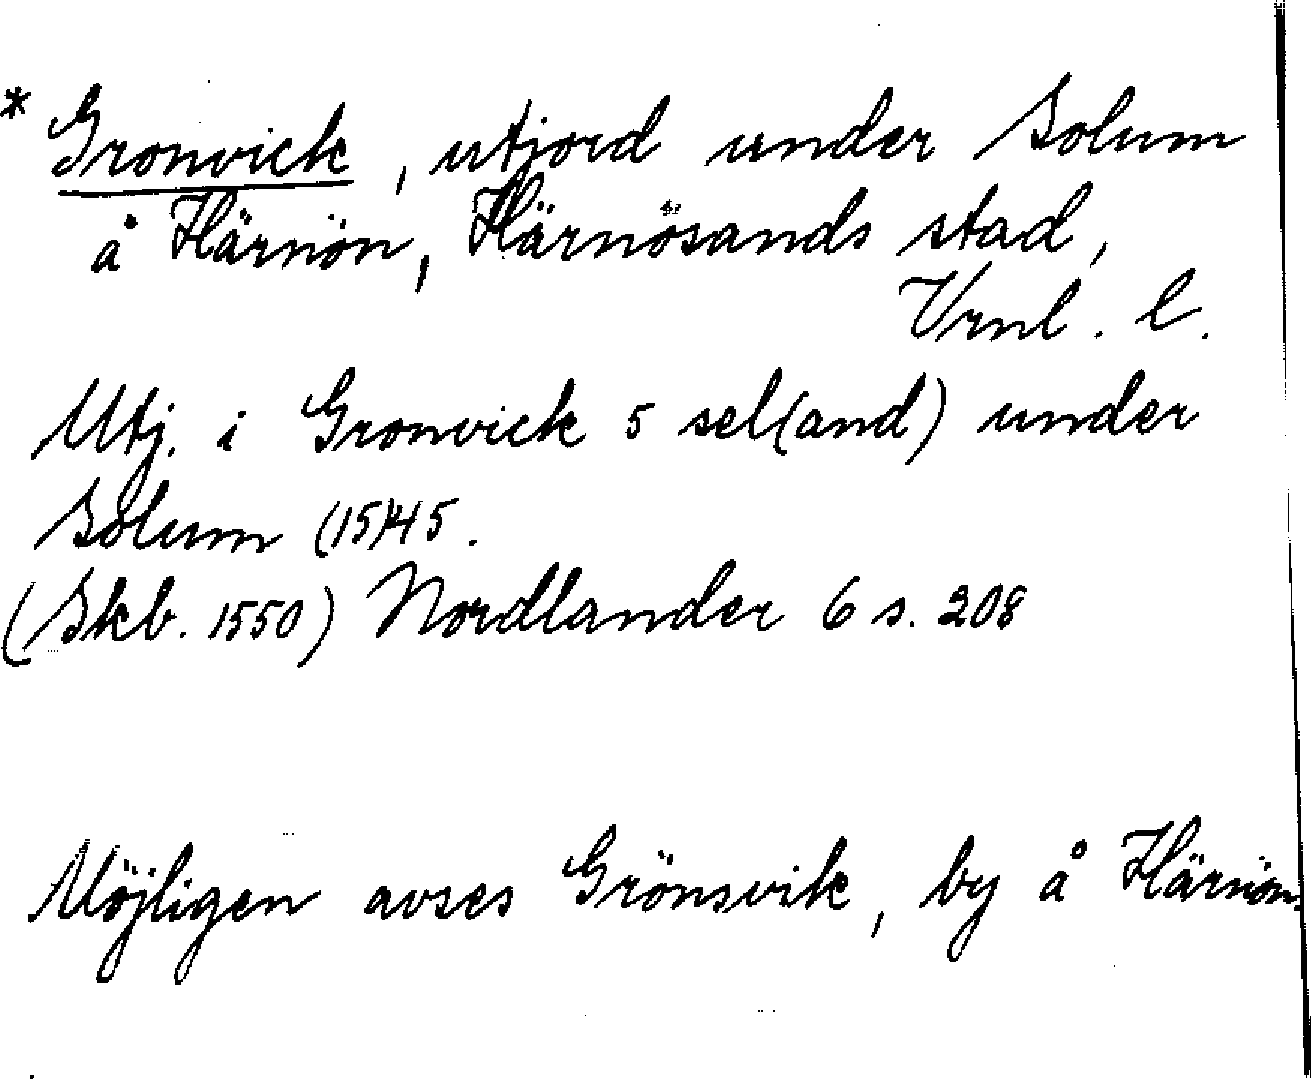 * Gronvick, utjord under Solum
å Härnön, Härnösands stad,
Vrnl. l.
Utj. i Gronvick 5 sel(and) under
Solum (15)45.
(Skb. 1550) Nordlander 6 s. 208
Möjligen avses Grönsvik, by å Härnön.